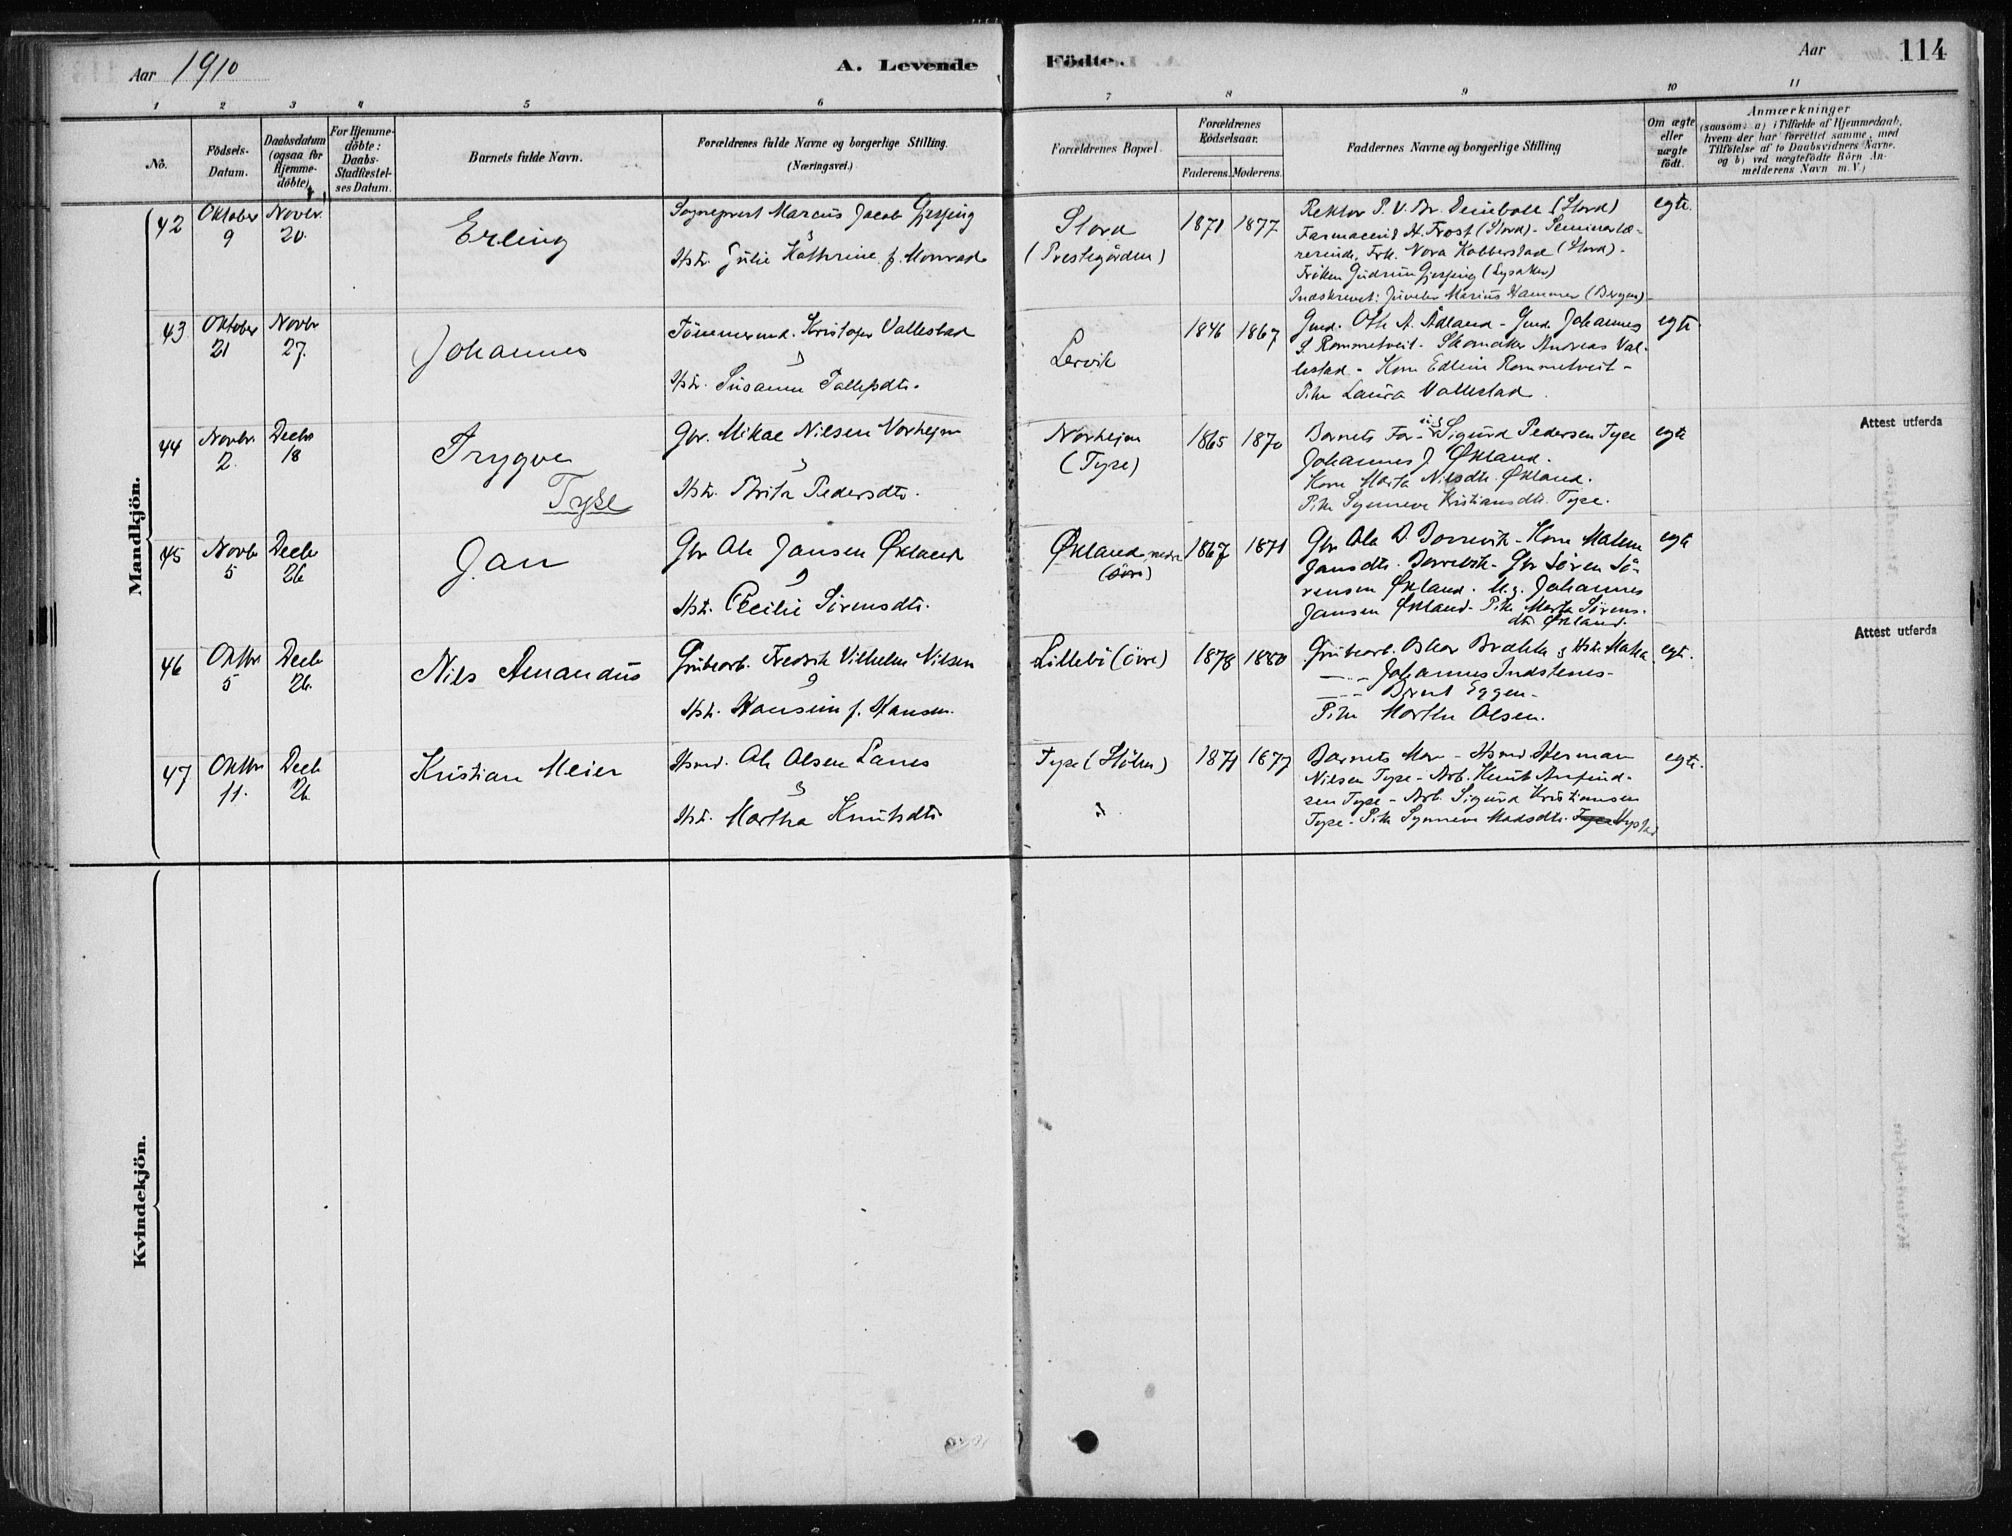 Aar 1910
A. Levende
Födte.
Aar
114
1
2
3
4
5
6
7
8
9
10
11
No.
Födsels-
Datum.
Daabsdatum
(ogsaa for
Hjemme-
döbte)
For Hjemme-
döbte:
Daabs-
Stadfæstel-
ses Datum.
Barnets fulde Navn.
Forældrenes fulde Navne og borgerlige Stilling.
(Næringsvei.)
Forældrenes Bopæl.
Forældrenes
Födselsaar.
Faderens.
Moderens.
Faddernes Navne og borgerlige Stilling
Om ægte
eller
uægte
født.
Anmærkninger
(saasom: a) i Tilfælde af Hjemmedaab,
hvem der har forrettet samme, med
Tilföielse af to Daabsvidners Navne.
og b) ved uægtefödte Börn An-
melderens Navn m. V.)
Mandkjön.
42
Oktober
9
Novbr.
20.
Erling
Sogneprest Marcus Jacob Gjessing
Hstr. Julie Kathrine f. Monrad
Stord
(Prestegården)
1871
1877
Rektor P. V. Br. Deinboll (Stord)
Farmaceut H. Frost (Stord) - Seminarlæ-
rerinde, Frk. Nora Kobberstad (Stord) -
Frøken Gudrun Gjessing (Lysaker)
Indskrevet: Juveler Marius Hammer (Bergen) -
egte.
43
Oktober
21
Novbr
27.
Johannes
Tömmermd. Kristofer Vallestad
Hstr. Susanna Tollefsdtr.
Lervik
1846
1867
Gmd. Oth A. Adland - Gmd. Johannes
S. Rommetveit - Skomaker Andreas Val-
lestad - Kone Edlein Rommetveit -
Pike Laura Vallestad.
egte
44
Novbr.
2.
Decbr
18
Trygve
Tyse
Gbr. Mikal Nilsen Norheim
Hstr. Brita Pedersdtr.
Norheim
(Tyse)
1865
1870
Barnets Far - Sigurd Pedersen Tyse
Johannes J. Økland.
Kone Marta Nilsdtr. Økland.
Pike Synneve Kristiansdtr. Tyse.
egte
Attest utferda
45
Novbr
5
Decbr
26
Jan
Gbr Ole Jansen Økland
Hstr. Cecilie Sörensdtr.
Økland, nedre
1867
1871
Gbr Ole D. Dorrevik - Kone Malene
Jansdtr. Dorrevik - Gbr Sören Sö-
rensen Økland. U.g. Johannes
Jansen Økland - Pike Marta Sörens-
dtr. Økland.
egte
46
Oktbr
5
Decbr
26.
Nils Amandus
Grubearb. Fredrik Vilhelm Nilsen
Hstr. Hansine f. Hansen.
Lillebö (övre)
1878
1880
Grubearb. Oskar Brække & Hstr.
Johannes Indstenes -
Bernt Eggen -
Pike Marthe Olsen.
egte.
Attest utferda
47
Oktbr
11.
Decbr
26
Kristian Meier
Hsmd. Ole Olsen Lanes
Hstr. Martha Knutsdtr
Tyse (Stölen)
1871
1877
Barnets Mor - Hsmd Herman
Nilsen Tyse - Arb. Knut Arfind-
sen Tyse - Arb. Sigurd Kristiansen
Tyse - Pike Synneve Madsdtr. Tyse Hystad
egte.
Kvindekjön.